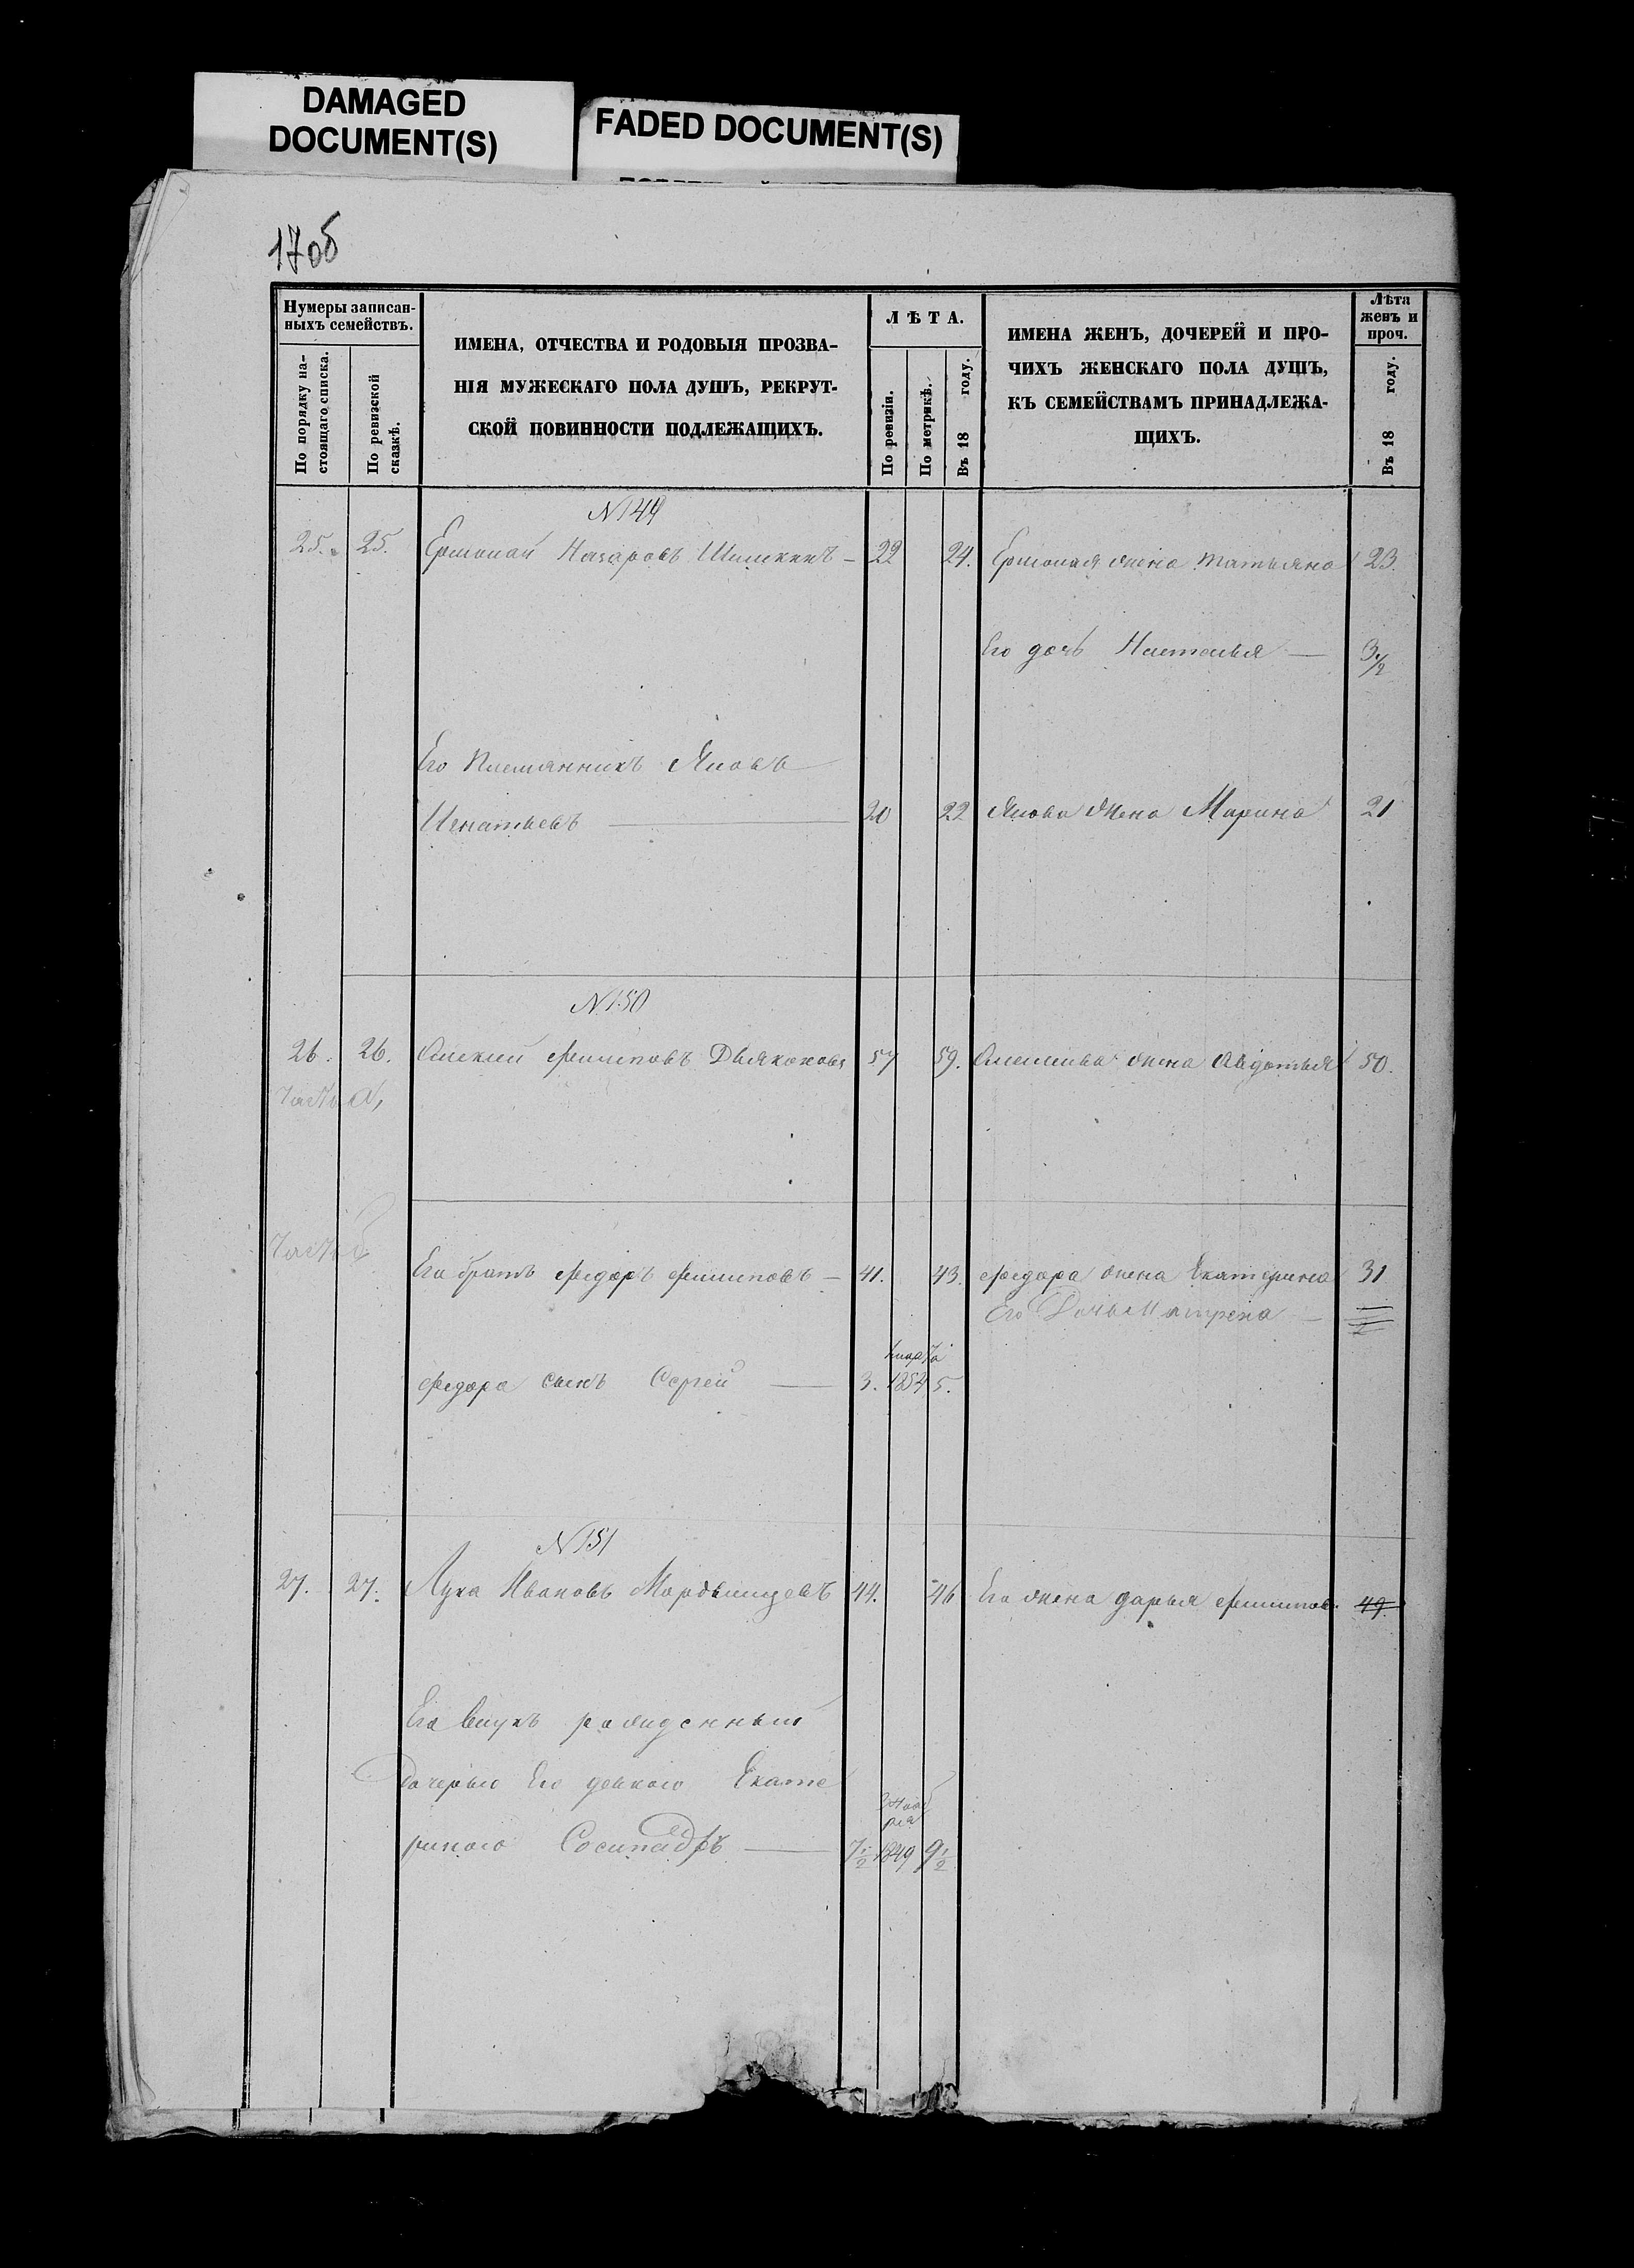 DAMAGED
DOCUMENT(S)
FADED DOCUMENT(S)
17об
Нумеры записан-
ныхъ семействъ.
По порядку на-
стоящаго списка.
По ревизской
сказкѣ.
ИМЕНА, ОТЧЕСТВА И РОДОВЫЯ ПРОЗВА-
НІЯ МУЖЕСКАГО ПОЛА ДУШЪ, РЕКРУТ-
СКОЙ ПОВИННОСТИ ПОДЛЕЖАЩИХЪ.
ЛѢТА.
По ревизіи.
По метрикѣ.
Въ 18 году.
ИМЕНА ЖЕНЪ, ДОЧЕРЕЙ И ПРО-
ЧИХЪ ЖЕНСКАГО ПОЛА ДУШЪ,
КЪ СЕМЕЙСТВАМЪ ПРИНАДЛЕЖА-
ЩИХЪ.
Лѣта
женъ и
проч.
Въ 18 году.
25. 25. Назаровъ Шишкинъ 22 24. жена Татьяна 23.
Его дочь Настасья 3 1/2
Его Племянникъ Яковъ
Игнатьевъ 20 22 Якова жена Марина 21
N 150
26. 26. Алексей Филиповъ Дьяконовъ 57 59. Алексѣева жена Авдотья 50.
Часть а,
Часть б
Его братъ Федоръ Филиповъ 41. 43. Федора жена Екатерина 31
Его Дочь Матрена
марта
Федора сынъ Сергей 3. 1854 5.
N 151
27. 27. Лука Ивановъ Мордвинцевъ 44. 46 Его жена дарья Филипов. 49.
Его внукъ рожденный
дочерью Его девкою Екате
риною Сосипадръ 7 1/2 1849 9 1/2